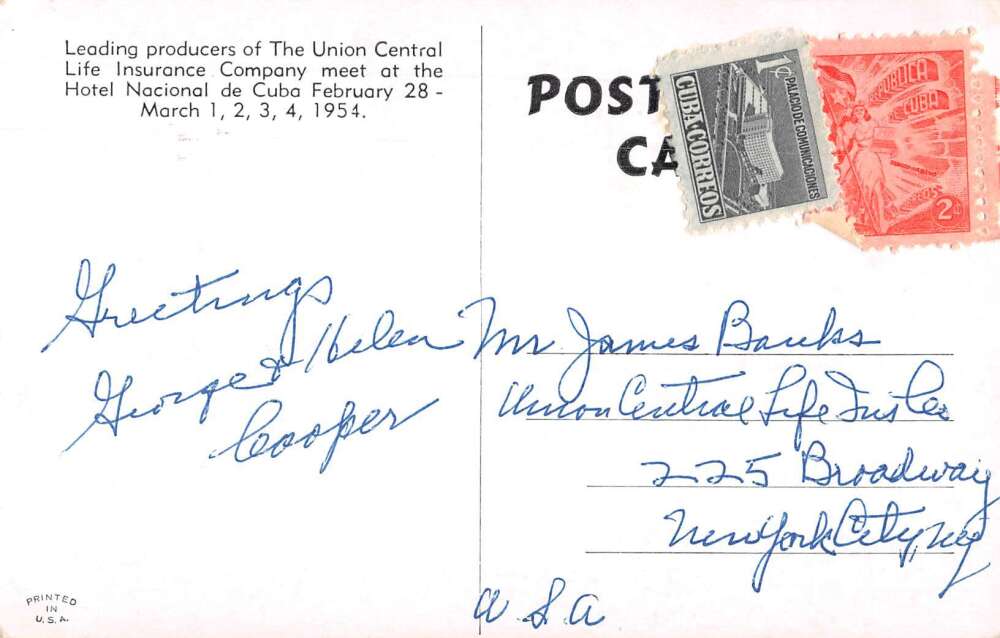 Leading producers of The Union Central
Life Insurance Company meet at the
Hotel Nacional de Cuba February 28 -
March 1, 2, 3, 4, 1954.
POST
CA
1¢
PALACIO DE COMUNICACIONES
CUBA·CORREOS
REPUBLICA
DE CUBA
CORREOS
2
Greetings
George & Helen
Cooper
Mr James Banks
Union Central Life Ins Co
225 Broadway
New York City, NY
U S A
PRINTED
IN
U.S.A.